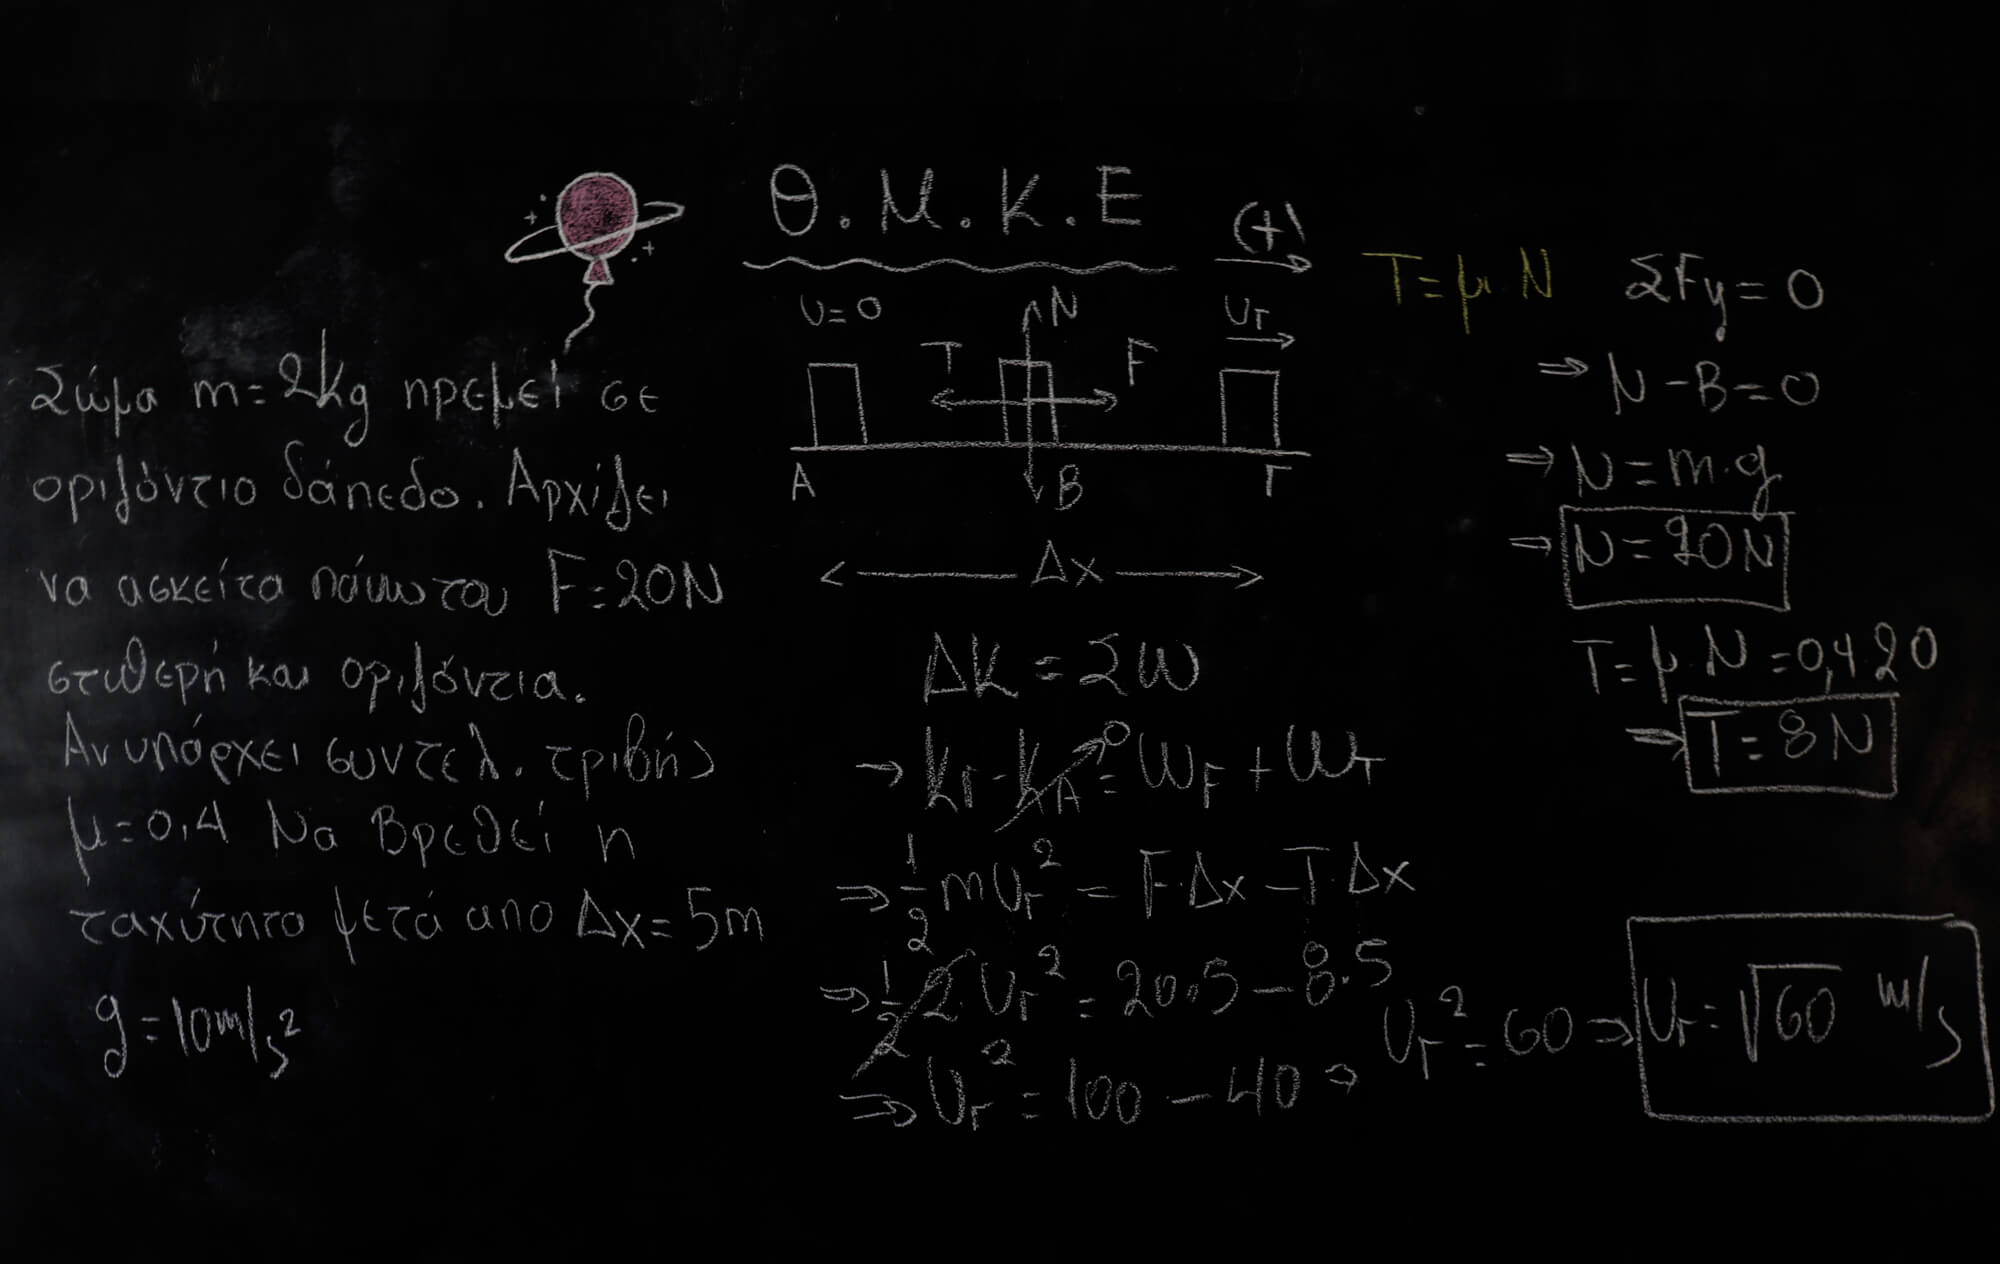 Θ.Μ.Κ.Ε
Σώμα m=2Kg ηρεμεί σε
οριζόντιο δάπεδο. Αρχίζει
να ασκείται πάνω του F=20N
σταθερή και οριζόντια.
Αν υπάρχει συντελ. τριβής
μ=0,4 Να Βρεθεί η
ταχύτητα μετά απο Δx=5m
g=10m/s²
(+)
υ=0
N
υΓ
T
F
A
B
Γ
Δx
ΔK = ΣW
→ KΓ - KA⁰ = WF + WT
⇒ 1/2 mυΓ² = F·Δx - T·Δx
⇒ 1/2 2·υΓ² = 20·5 - 8·5
⇒ υΓ² = 100 - 40 ⇒
υΓ² = 60 ⇒ υΓ = √60 m/s
T=μ·N
ΣFy = 0
⇒ N - B = 0
⇒ N = m·g
⇒ N = 20N
T = μ·N = 0,4·20
⇒ T = 8N